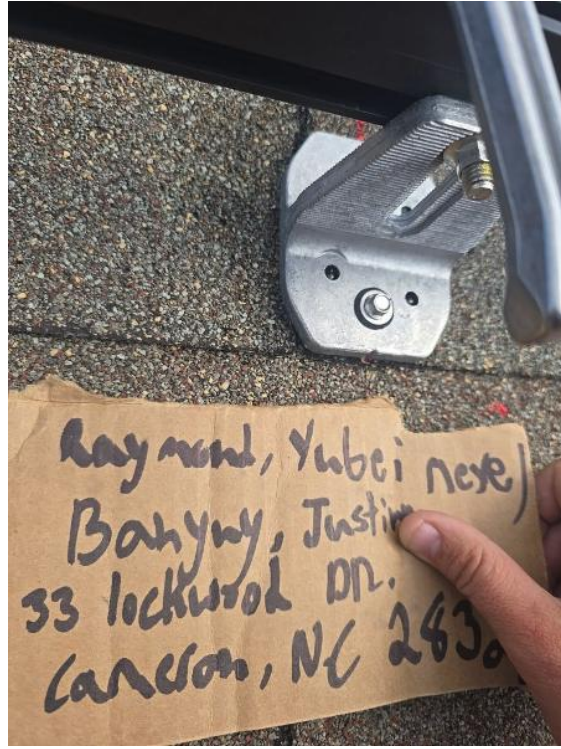 Raymond, Yubei nese)
Banyuy, Justin
33 lockwood DR.
Cameron, NC 283